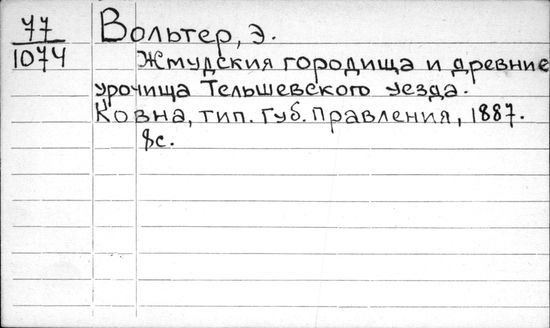 77
1074
Вольтер, Э.
Жмудския городища и древние
урочища Тельшевского уезда.
Ковна, тип. Губ. Правления, 1887.
8с.